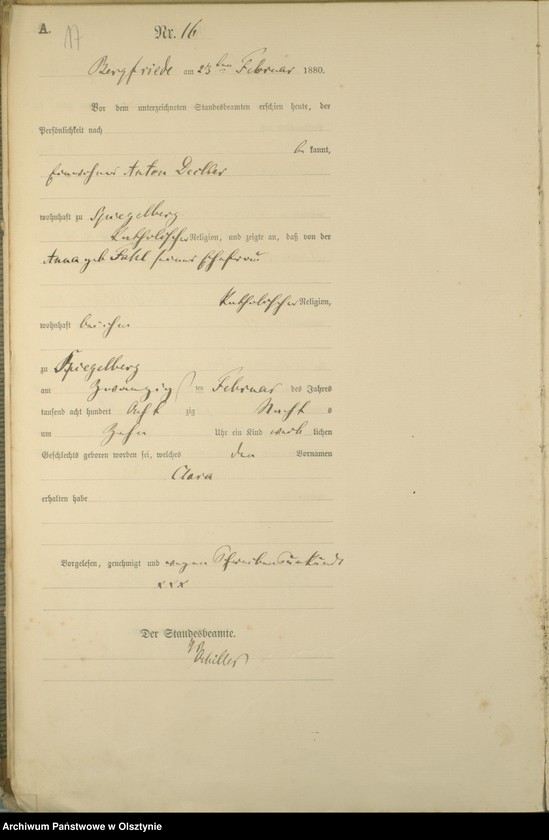 A.
17
Nr. 16
Bergfriede am 23ten Februar 1880.
Vor dem unterzeichneten Standesbeamten erschien heute, der
Persönlichkeit nach
be kannt,
Einwohner Anton
wohnhaft zu Spiegelberg
katholischer Religion, und zeigte an, daß von der
Anna geb seiner Ehefrau
katholischer Religion,
wohnhaft bei ihm
zu Spiegelberg
am Zwanzigsten Februar des Jahres
tausend acht hundert Acht zig Nacht s
um Zehn Uhr ein Kind weib lichen
Geschlechts geboren worden sei, welches den Vornamen
Clara
erhalten habe
Vorgelesen, genehmigt und wegen Schreibensunkunde
xxx
Der Standesbeamte.
Schiller
Archiwum Państwowe w Olsztynie